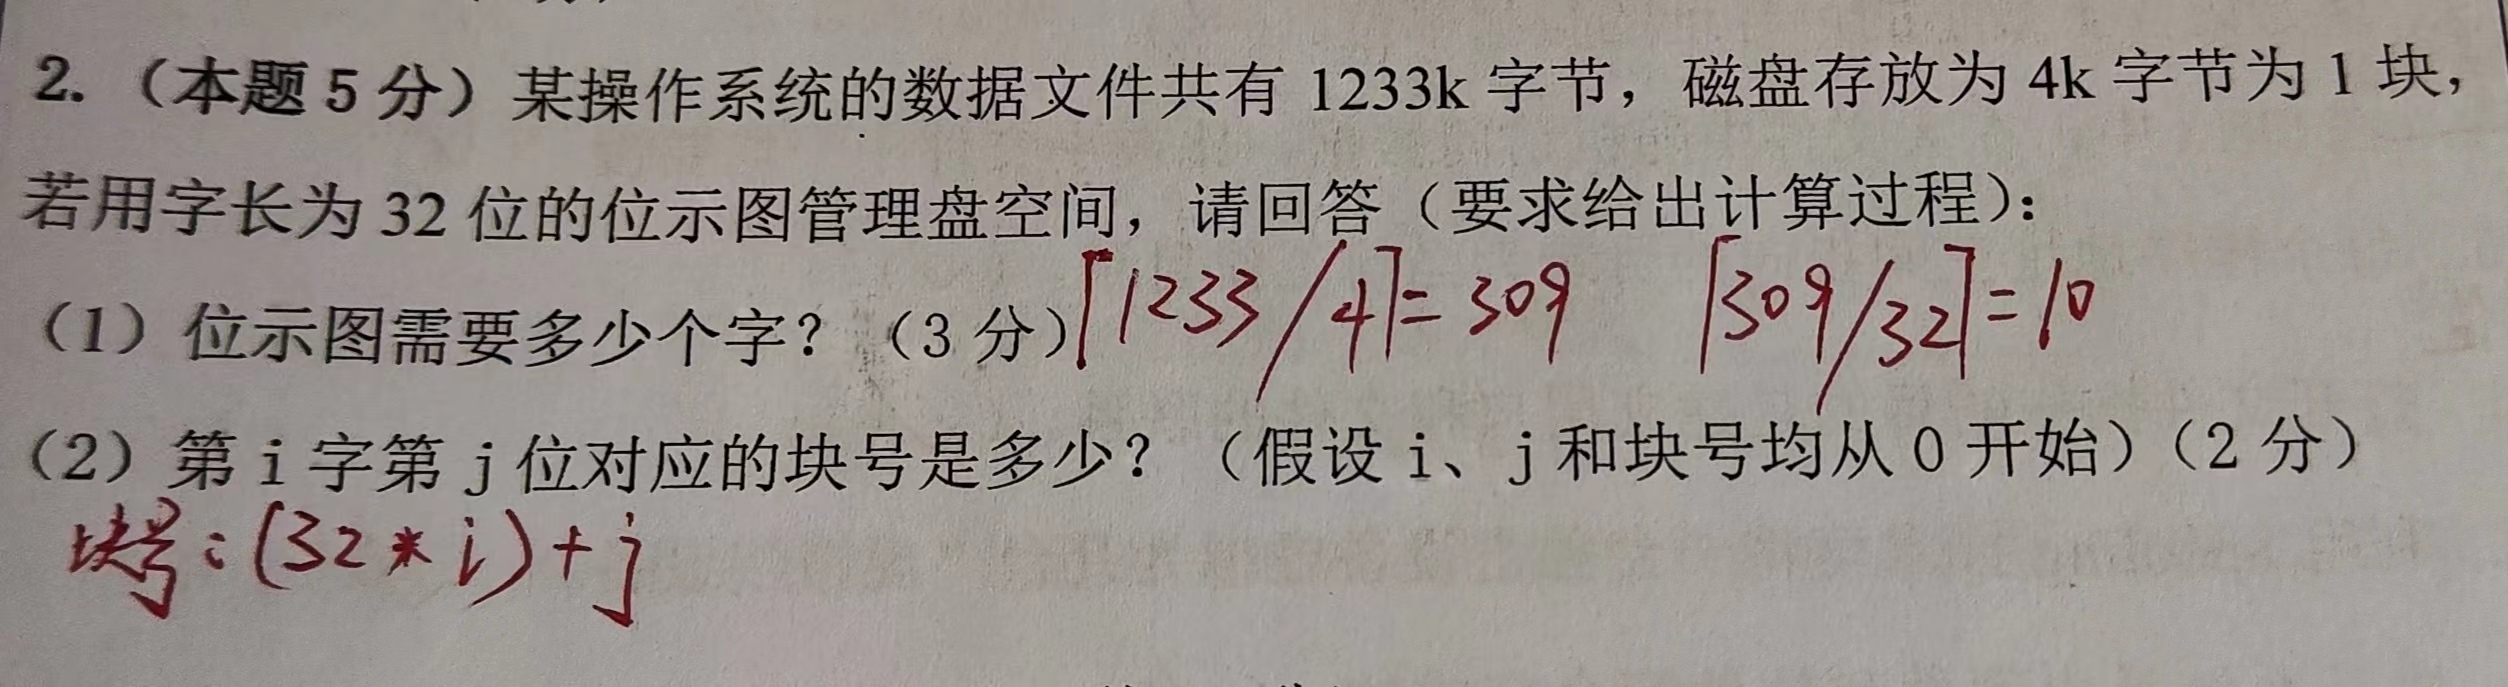 2.（本题5分）某操作系统的数据文件共有 1233k 字节，磁盘存放为 4k 字节为 1 块，
若用字长为 32 位的位示图管理盘空间，请回答（要求给出计算过程）：
（1）位示图需要多少个字？（3 分）⌈1233/4⌉=309 ⌈309/32⌉=10
（2）第 i 字第 j 位对应的块号是多少？（假设 i、j 和块号均从 0 开始）（2 分）
块号：(32*i)+j